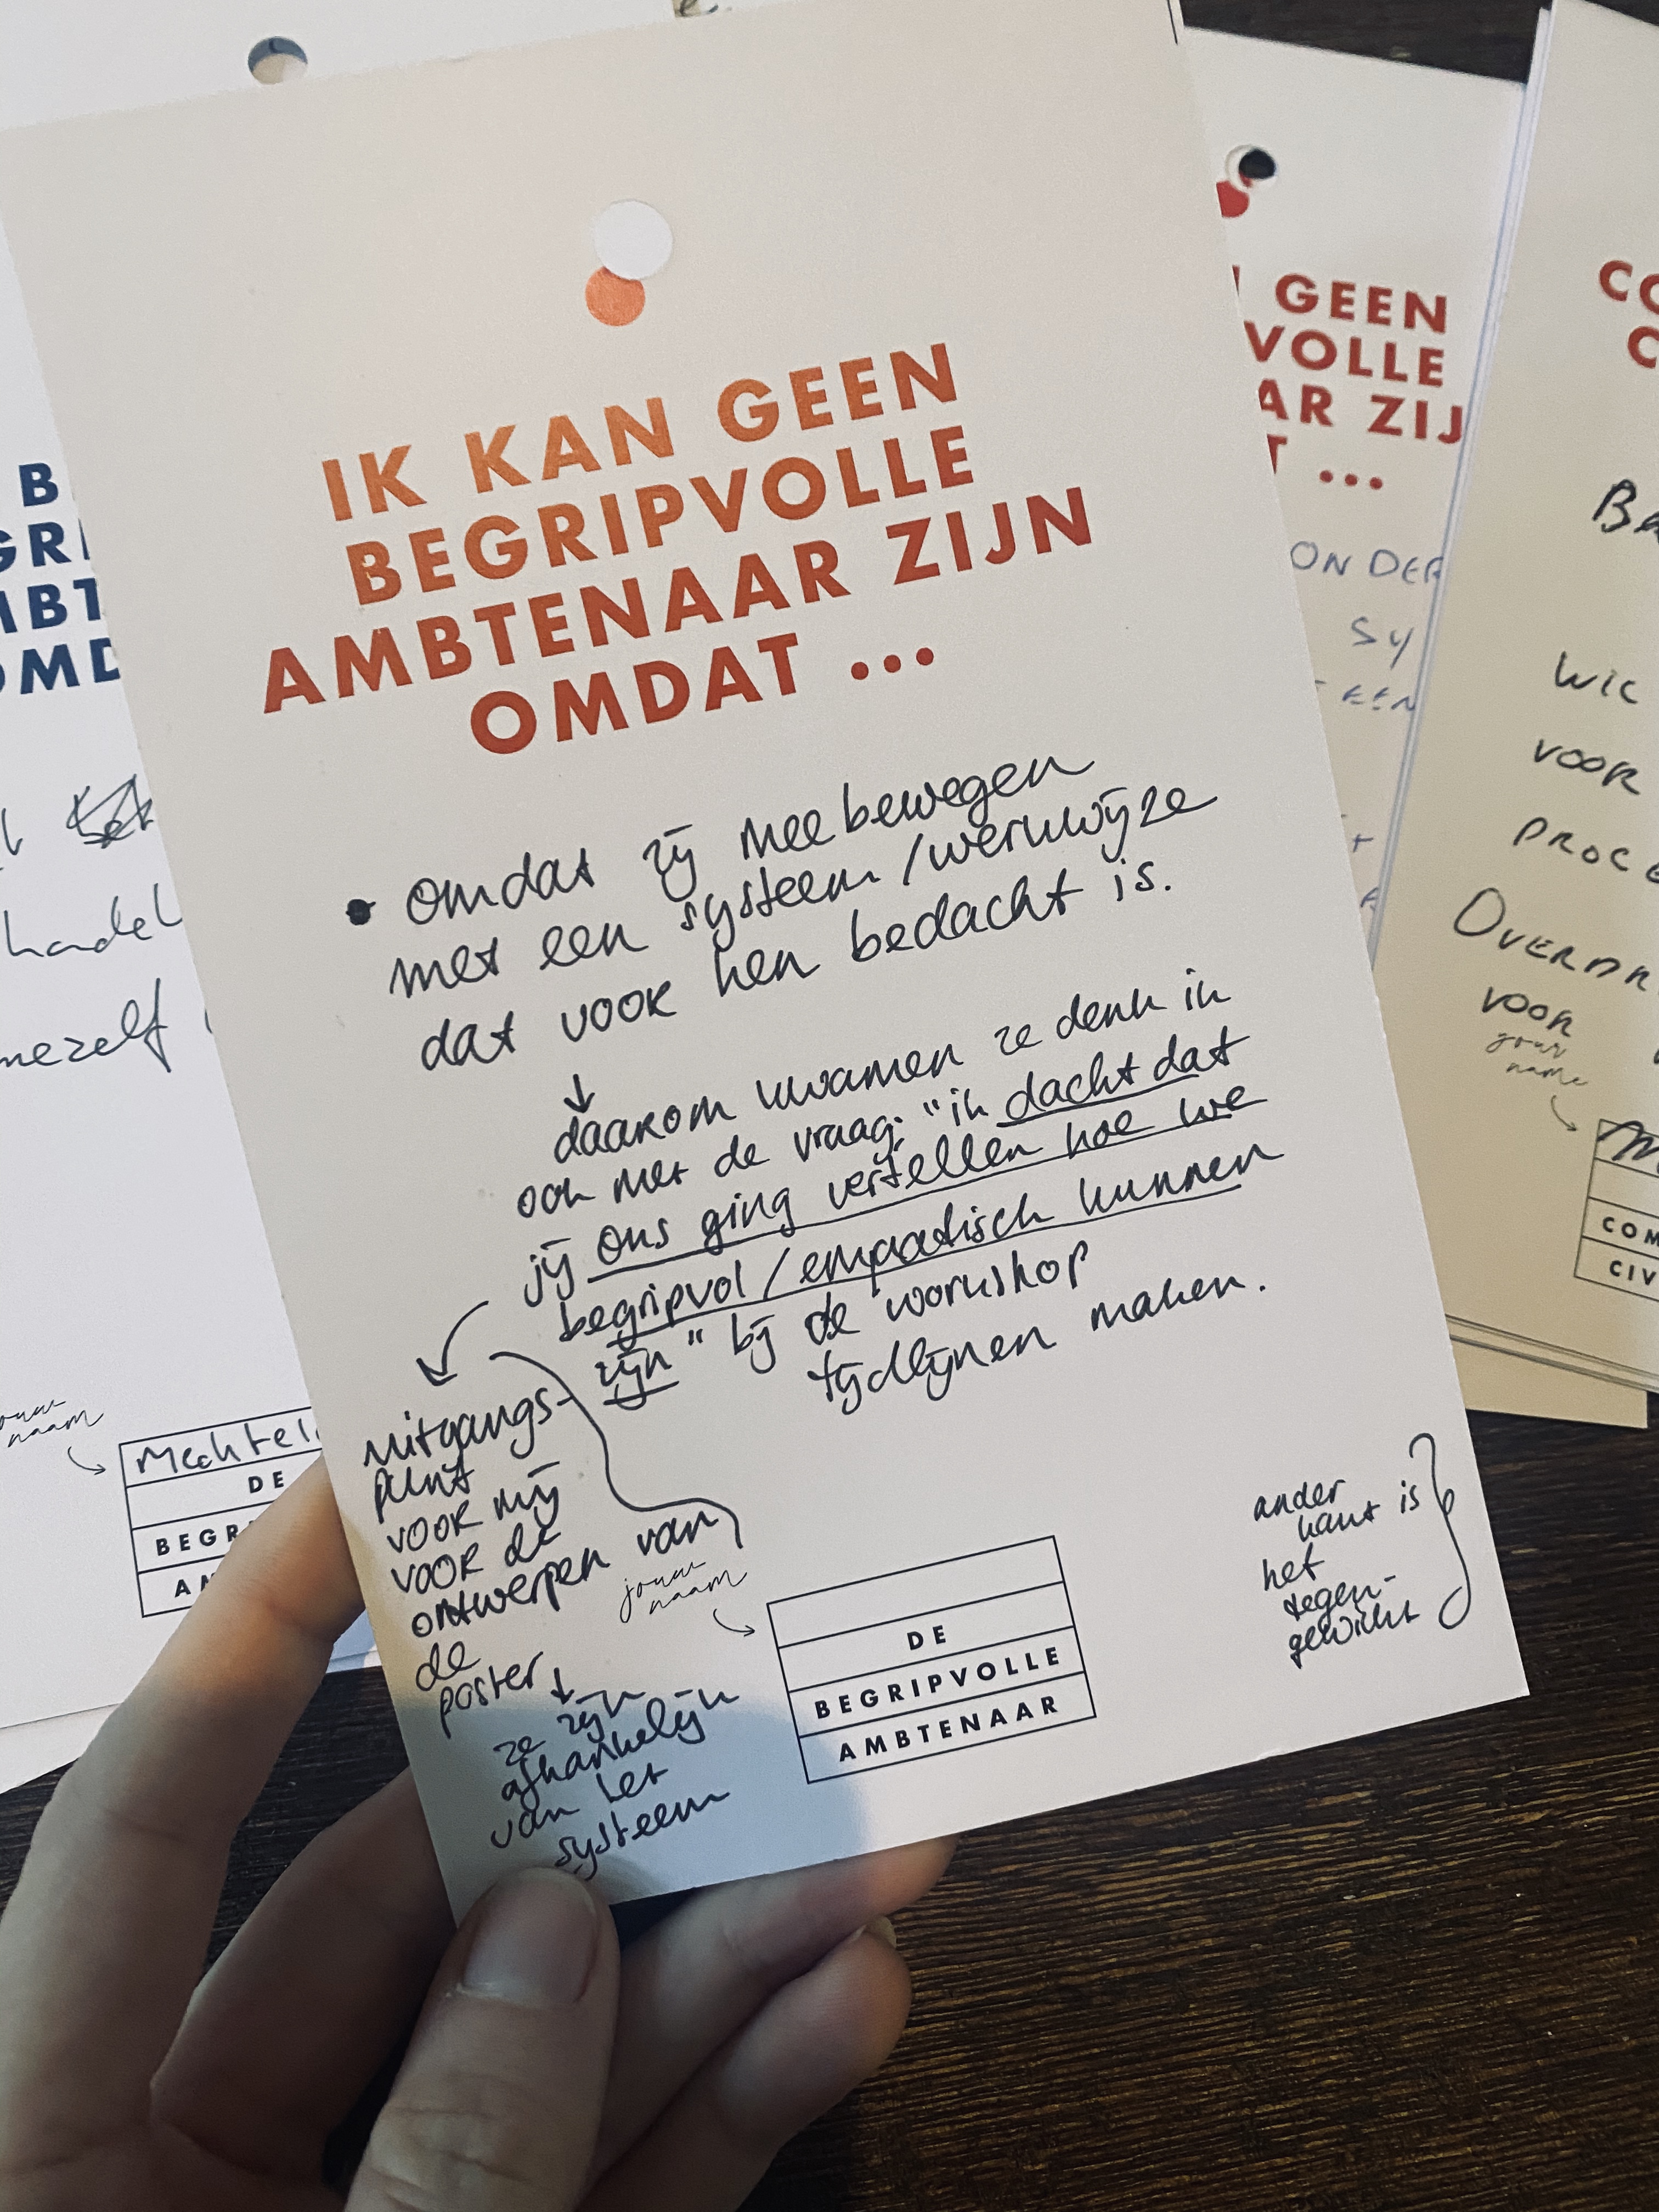 IK KAN GEEN
BEGRIPVOLLE
AMBTENAAR ZIJN
OMDAT ...
• omdat zij meebewegen
met een systeem/werkwijze
dat voor hen bedacht is.
↓
daarom kwamen ze denk in
ook met de vraag: "ik dacht dat
jij ons ging vertellen hoe we
begripvol/empatisch kunnen
zijn" bij de workshop
tijdlijnen maken.
uitgangs-
punt
voor mij
voor de
ontwerpen van
de
poster
↓
ze zijn
afhankelijk
van het
systeem
jouw
naam
DE
BEGRIPVOLLE
AMBTENAAR
ander
kant is
het
tegen-
gewicht
B
GRI
MBT
OMD
handel
mezelf
jouw
naam
Mechtel
DE
BEGR
AM
GEEN
VOLLE
AR ZIJ
T ...
ONDER
SY
EEN
CO
C
BA
WIC
VOOR
PROCE
OVERDR
VOOR
your
name
COM
CIV